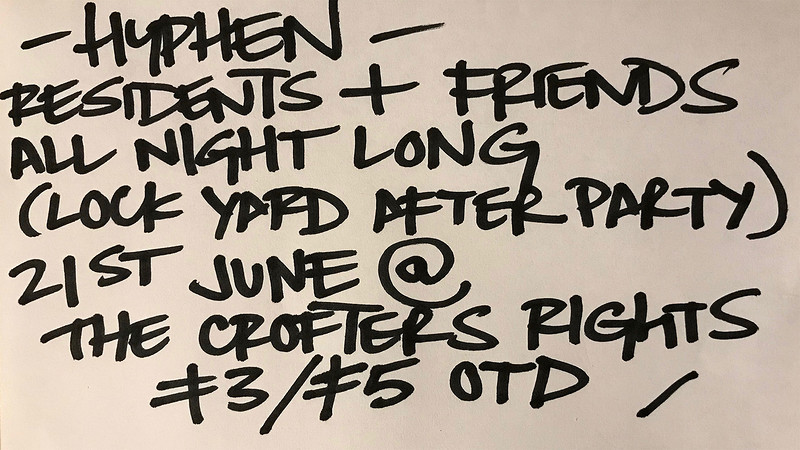 - HYPHEN -
RESIDENTS + FRIENDS
ALL NIGHT LONG
(LOCK YARD AFTER PARTY)
21ST JUNE @
THE CROFTERS RIGHTS
£3/£5 OTD /